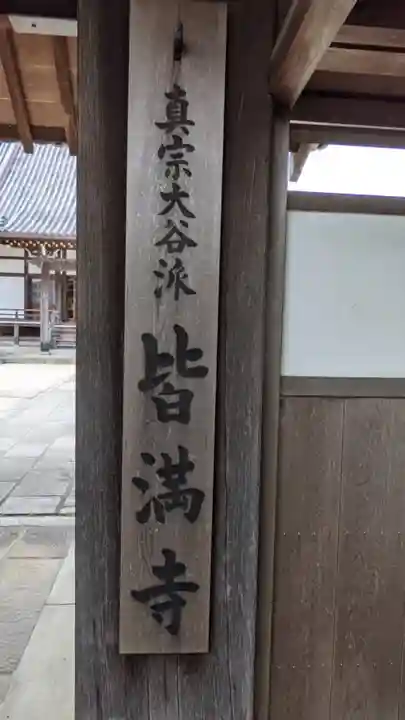 真宗大谷派 皆満寺